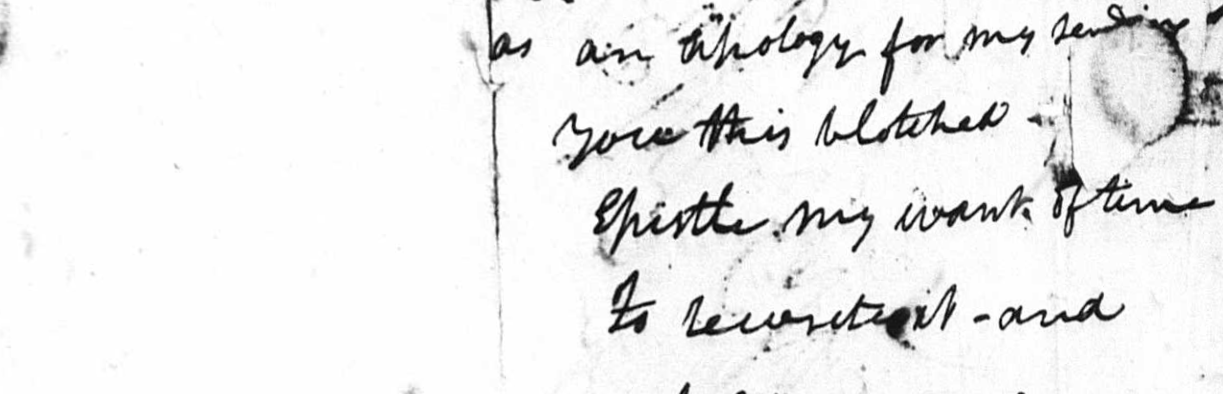 as an apology for my sending
you this blotched -
Epistle my want of time
to rewrite it - and